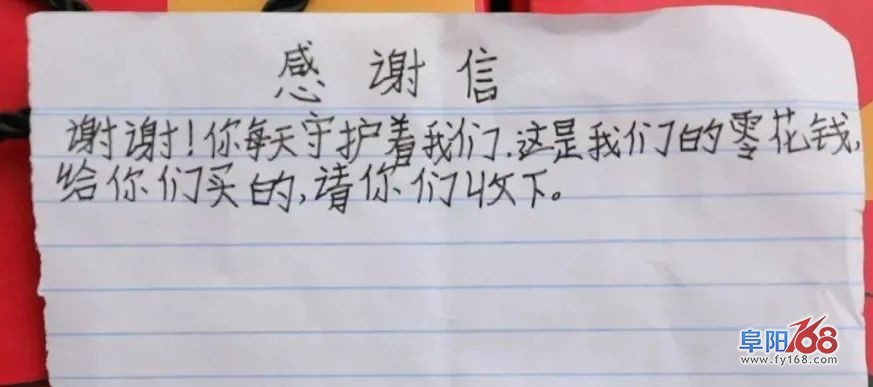 感谢信
谢谢!你每天守护着我们.这是我们的零花钱,
给你们买的,请你们收下。
阜阳168
www.fy168.com